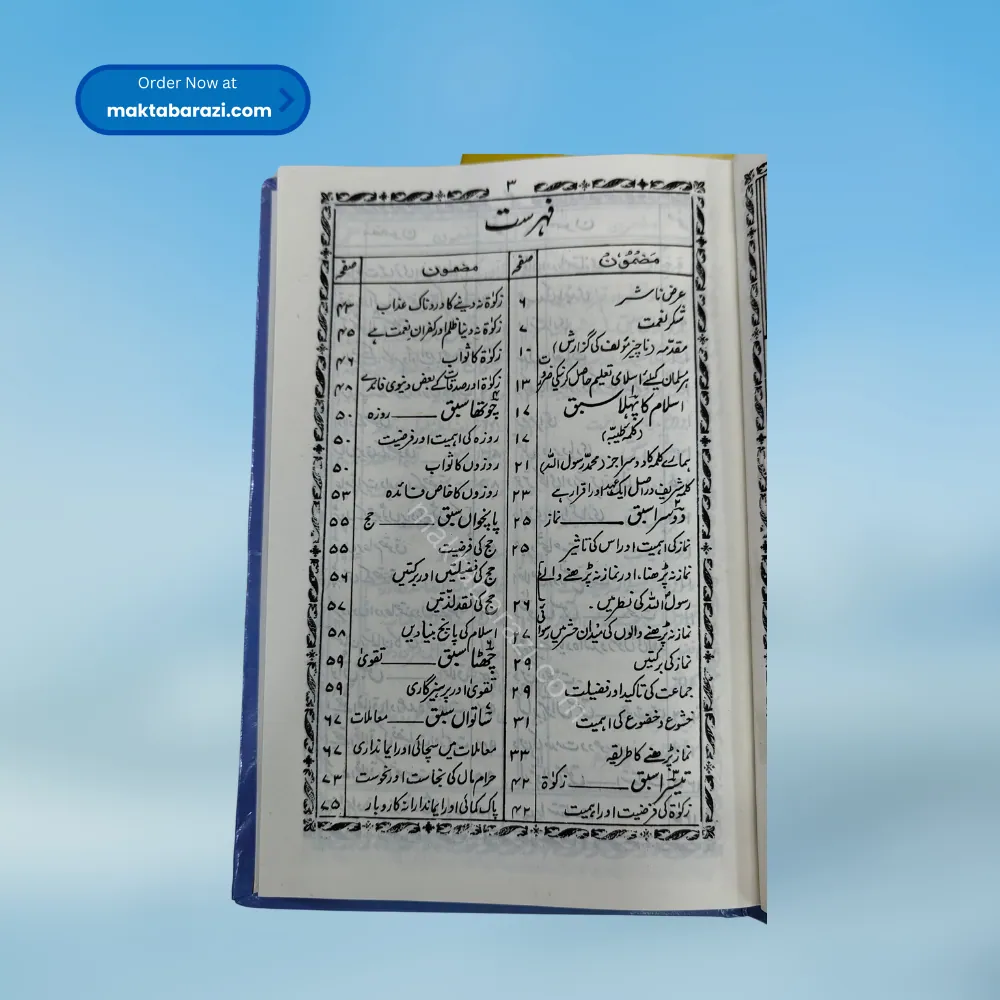 Order Now at
maktabarazi.com
۳
فہرست
مضمون صفحہ
عرض ناشر ۶
شکر نعمت ۷
مقدمہ (ناچیز مؤلف کی گزارش)
ہر مسلمان کیلئے اسلامی تعلیم حاصل کرنیکی ضرورت ۱۳
اسلام کا پہلا سبق ۱۷
(کلمہ طیبہ) ۱۷
ہمارے کلمہ کا دوسرا جز (محمد رسول اللہ) ۲۱
کلمہ شریف در اصل ایک عہد اور اقرار ہے ۲۳
دوسرا سبق ــــــ نماز ۲۵
نماز کی اہمیت اور اس کی تاثیر ۲۵
نماز نہ پڑھنا، اور نماز نہ پڑھنے والے
رسول اللہ کی نظر میں۔ ۲۶
نماز نہ پڑھنے والوں کی میدان حشر میں رسوائی ۲۷
نماز کی برکتیں ۲۹
جماعت کی تاکید اور فضیلت ۲۹
خشوع و خضوع کی اہمیت ۳۱
نماز پڑھنے کا طریقہ ۳۳
تیسرا سبق ــــــ زکوٰۃ ۴۲
زکوٰۃ کی فرضیت اور اہمیت ۴۲
مضمون صفحہ
زکوٰۃ نہ دینے کا دردناک عذاب ۴۳
زکوٰۃ نہ دینا ظلم اور کفران نعمت ہے ۴۵
زکوٰۃ کا ثواب ۴۶
زکوٰۃ اور صدقات کے بعض دنیوی فائدے ۴۸
چوتھا سبق ــــــ روزہ ۵۰
روزہ کی اہمیت اور فرضیت ۵۰
روزوں کا ثواب ۵۰
روزوں کا خاص فائدہ ۵۳
پانچواں سبق ــــــ حج ۵۵
حج کی فرضیت ۵۵
حج کی فضیلتیں اور برکتیں ۵۶
حج کی نقد لذتیں ۵۷
اسلام کی پانچ بنیادیں ۵۸
چھٹا سبق ــــــ تقویٰ ۵۹
تقویٰ اور پرہیزگاری ۵۹
ساتواں سبق ــــــ معاملات ۶۷
معاملات میں سچائی اور ایمانداری ۶۷
حرام مال کی نجاست اور نحوست ۷۳
پاک کمائی اور ایماندارانہ کاروبار ۷۵